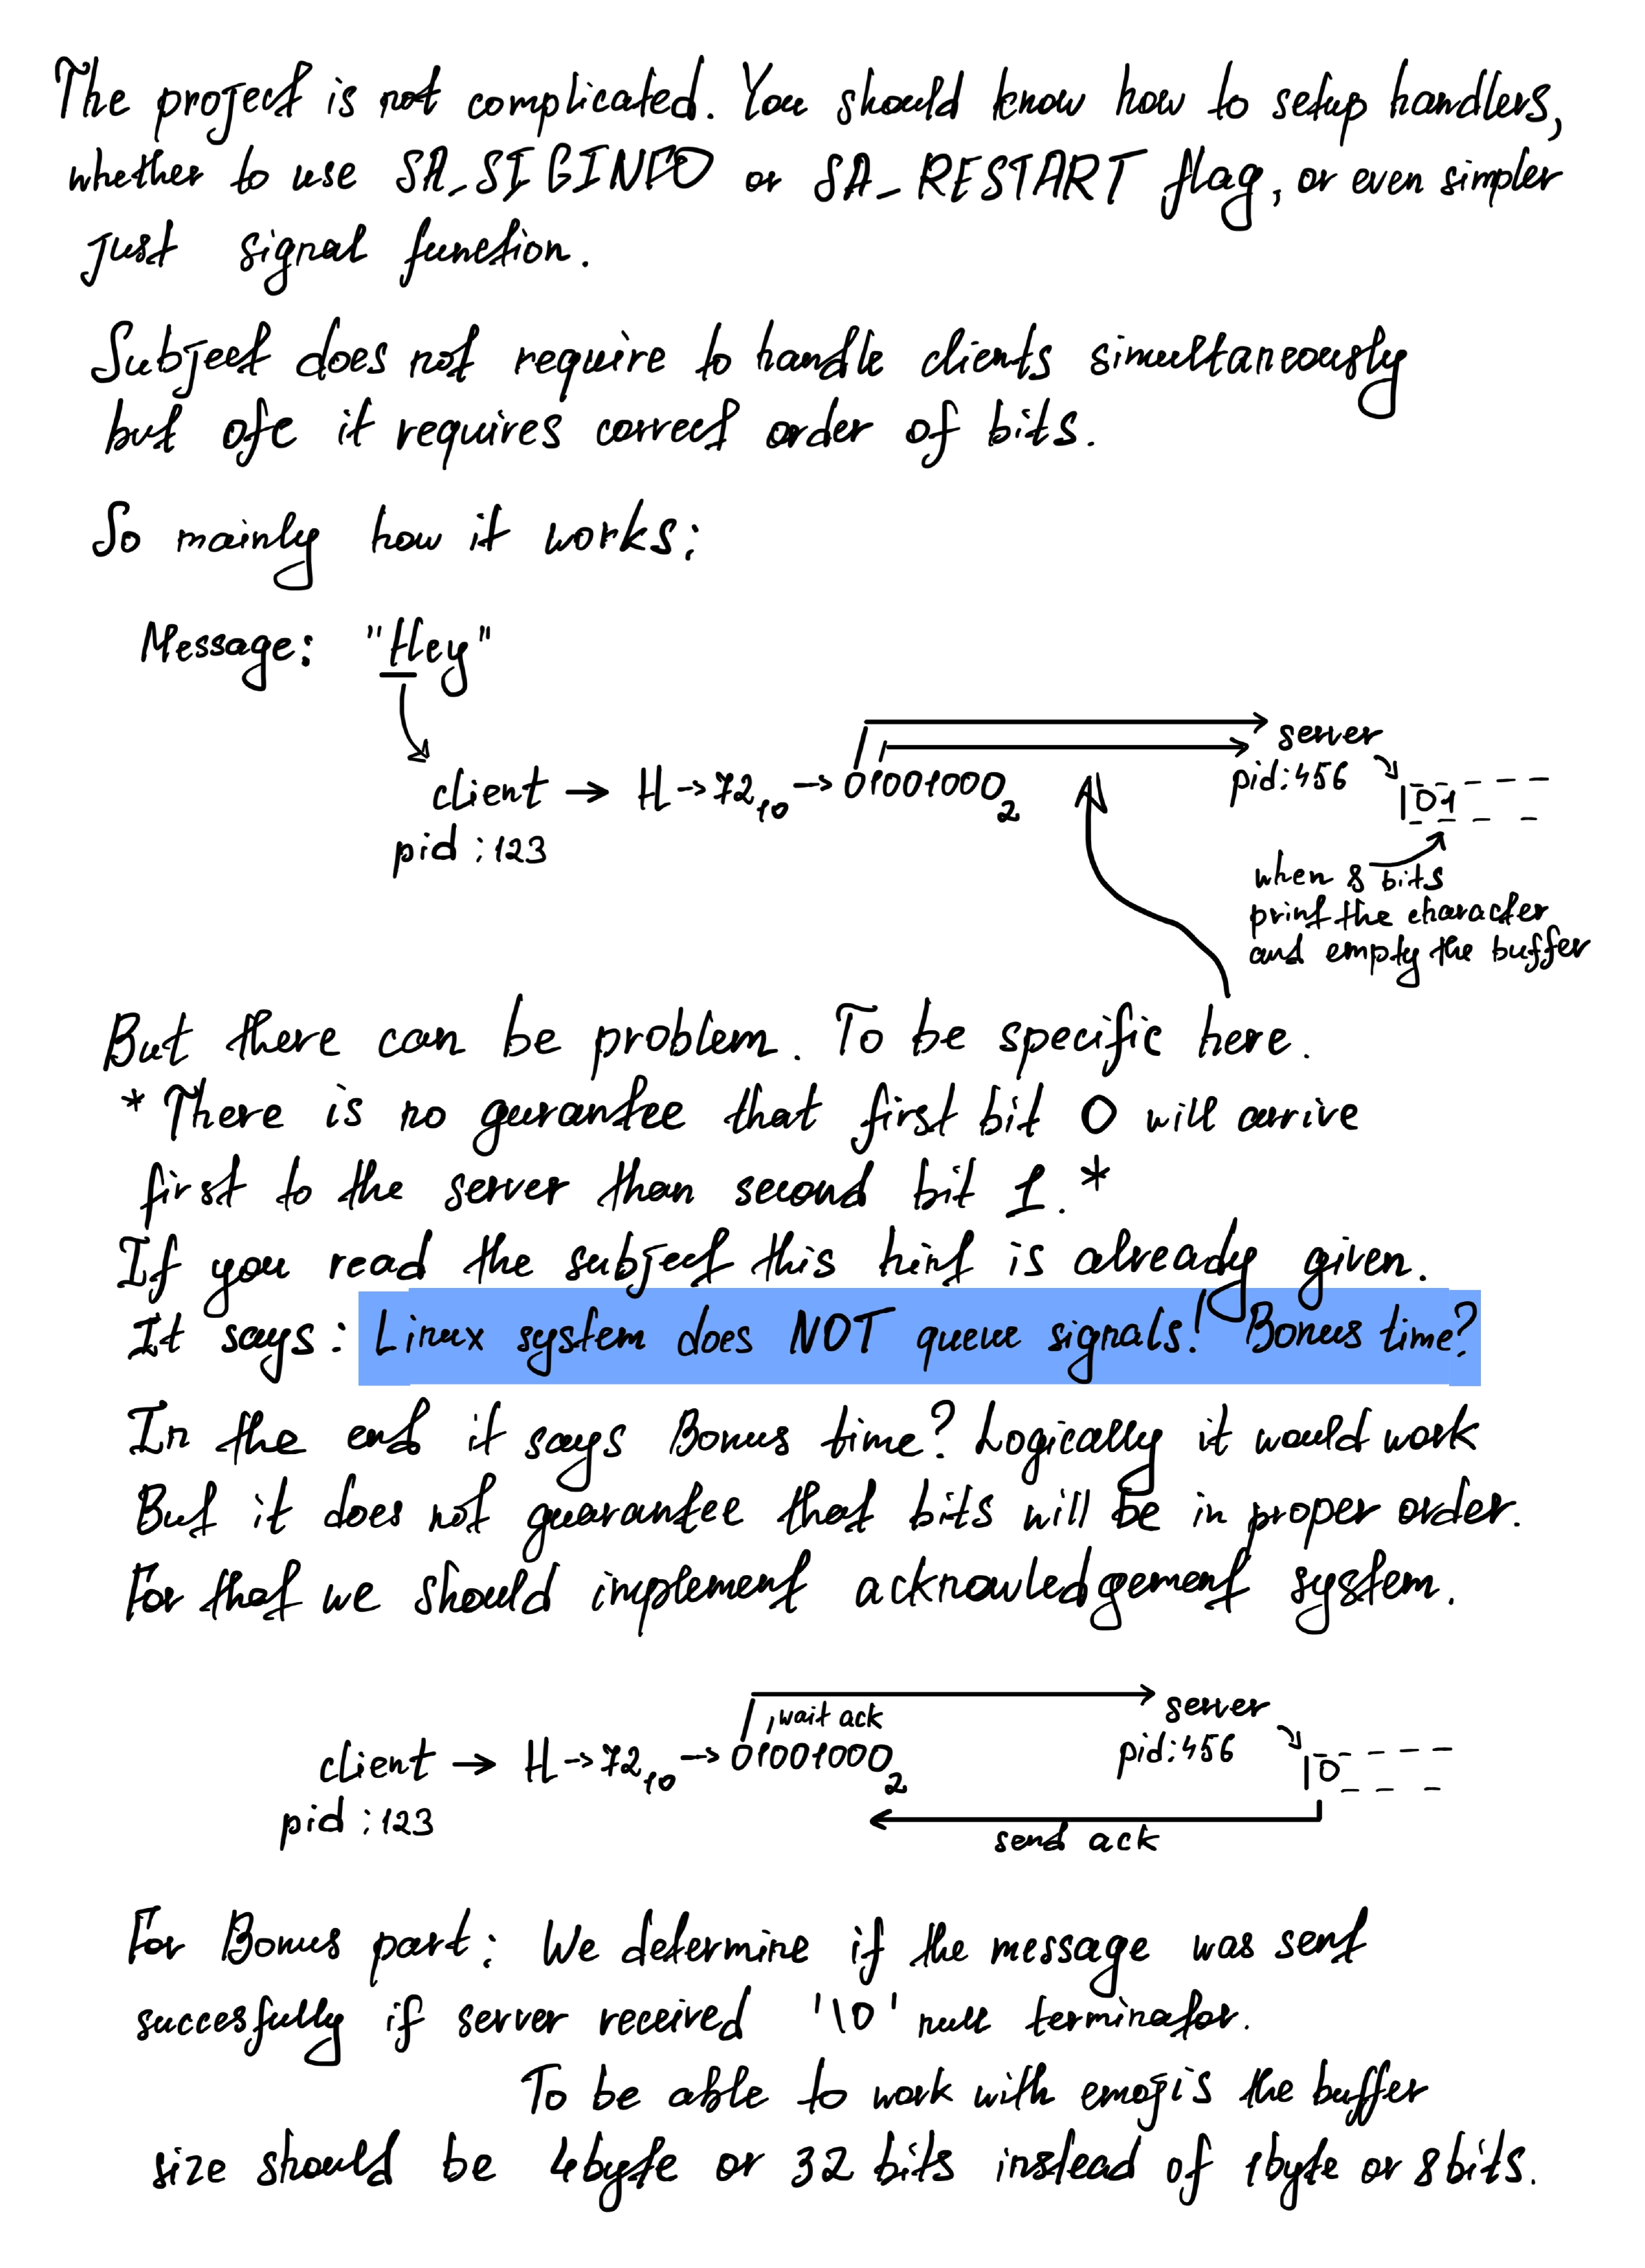 The project is not complicated. You should know how to setup handlers,
whether to use SA_SIGINFO or SA_RESTART flag, or even simpler
just signal function.
Subject does not require to handle clients simultaneously
but ofc it requires correct order of bits.
So mainly how it works:
Message: "Hey"
server
client → H → 72₁₀ → 01001000₂ pid:456 01
pid : 123
when 8 bits
print the character
and empty the buffer
But there can be problem. To be specific here.
* There is no gurantee that first bit 0 will arrive
first to the server than second bit 1.*
If you read the subject this hint is already given.
It says: Linux system does NOT queue signals! Bonus time?
In the end it says Bonus time? Logically it would work
But it does not guarantee that bits will be in proper order.
For that we should implement acknowledgement system.
server
, wait ack
client → H → 72₁₀ → 01001000₂ pid:456 0
pid : 123
send ack
For Bonus part: We determine if the message was sent
succesfully if server received '\0' null terminator.
To be able to work with emojis the buffer
size should be 4byte or 32 bits instead of 1byte or 8bits.